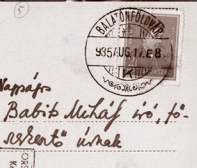 5
BALATONFÖLDVÁR
935 AUG. 17. E 8
Nagyságos
Babits Mihály író, fő-
szerkesztő úrnak